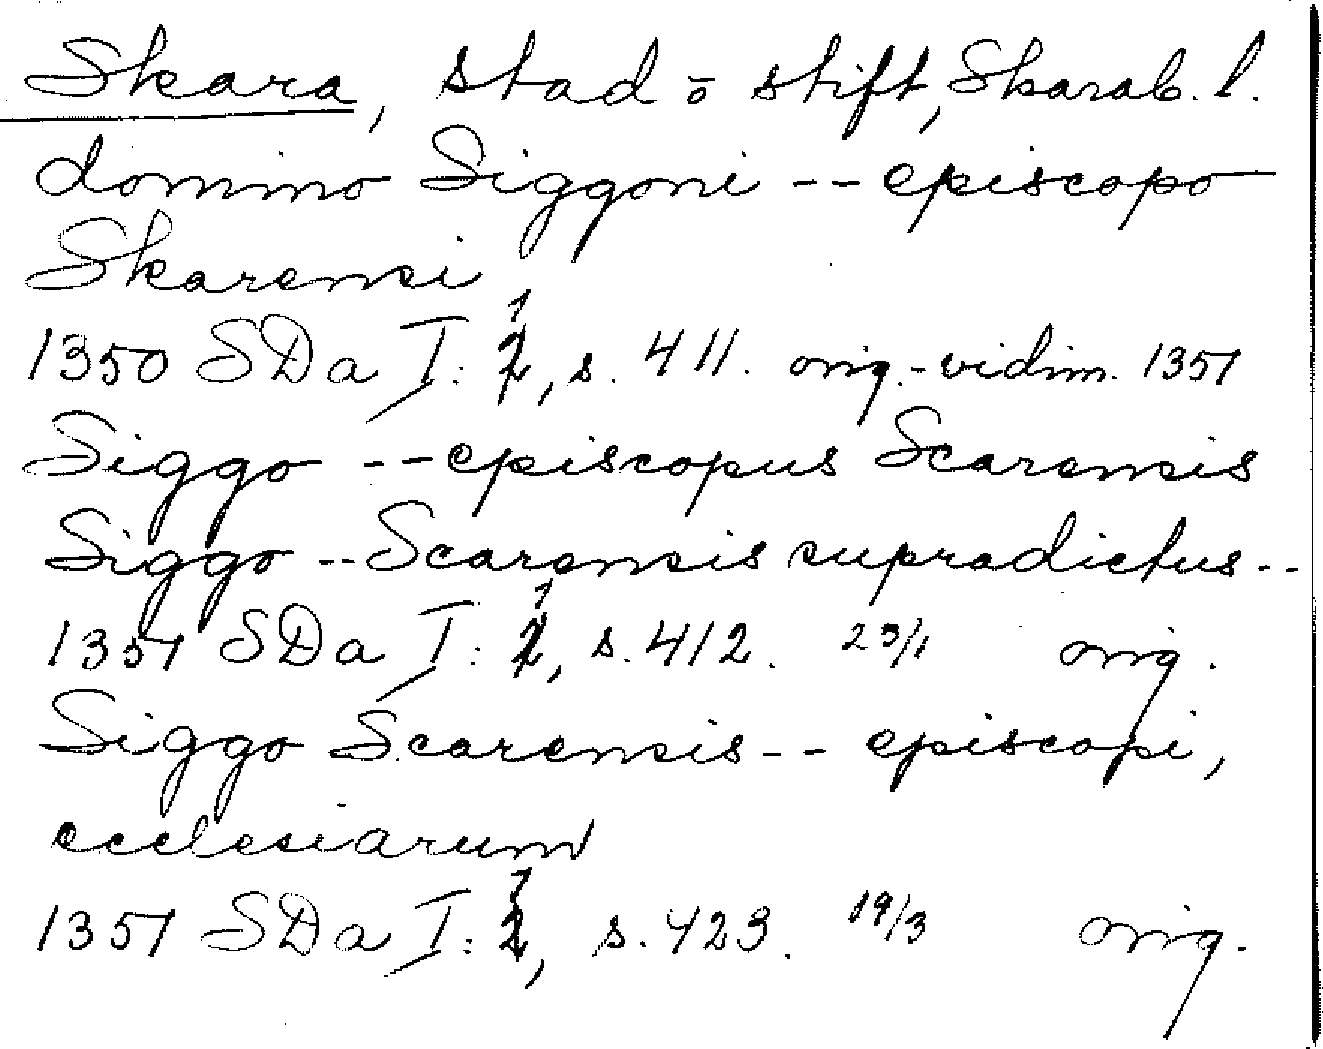 Skara, stad o stift, Skarab. l.
domino Siggoni -- episcopo
Skarensi
1350 SDa I: 1, s. 411. orig.-vidim. 1351
Siggo -- episcopus Scarensis
Siggo -- Scarensis supradictus --
1351 SDa I: 1, s. 412. 23/1 orig.
Siggo Scarensis -- episcopi,
ecclesiarum
1351 SDa I: 1, s. 423. 19/3 orig.